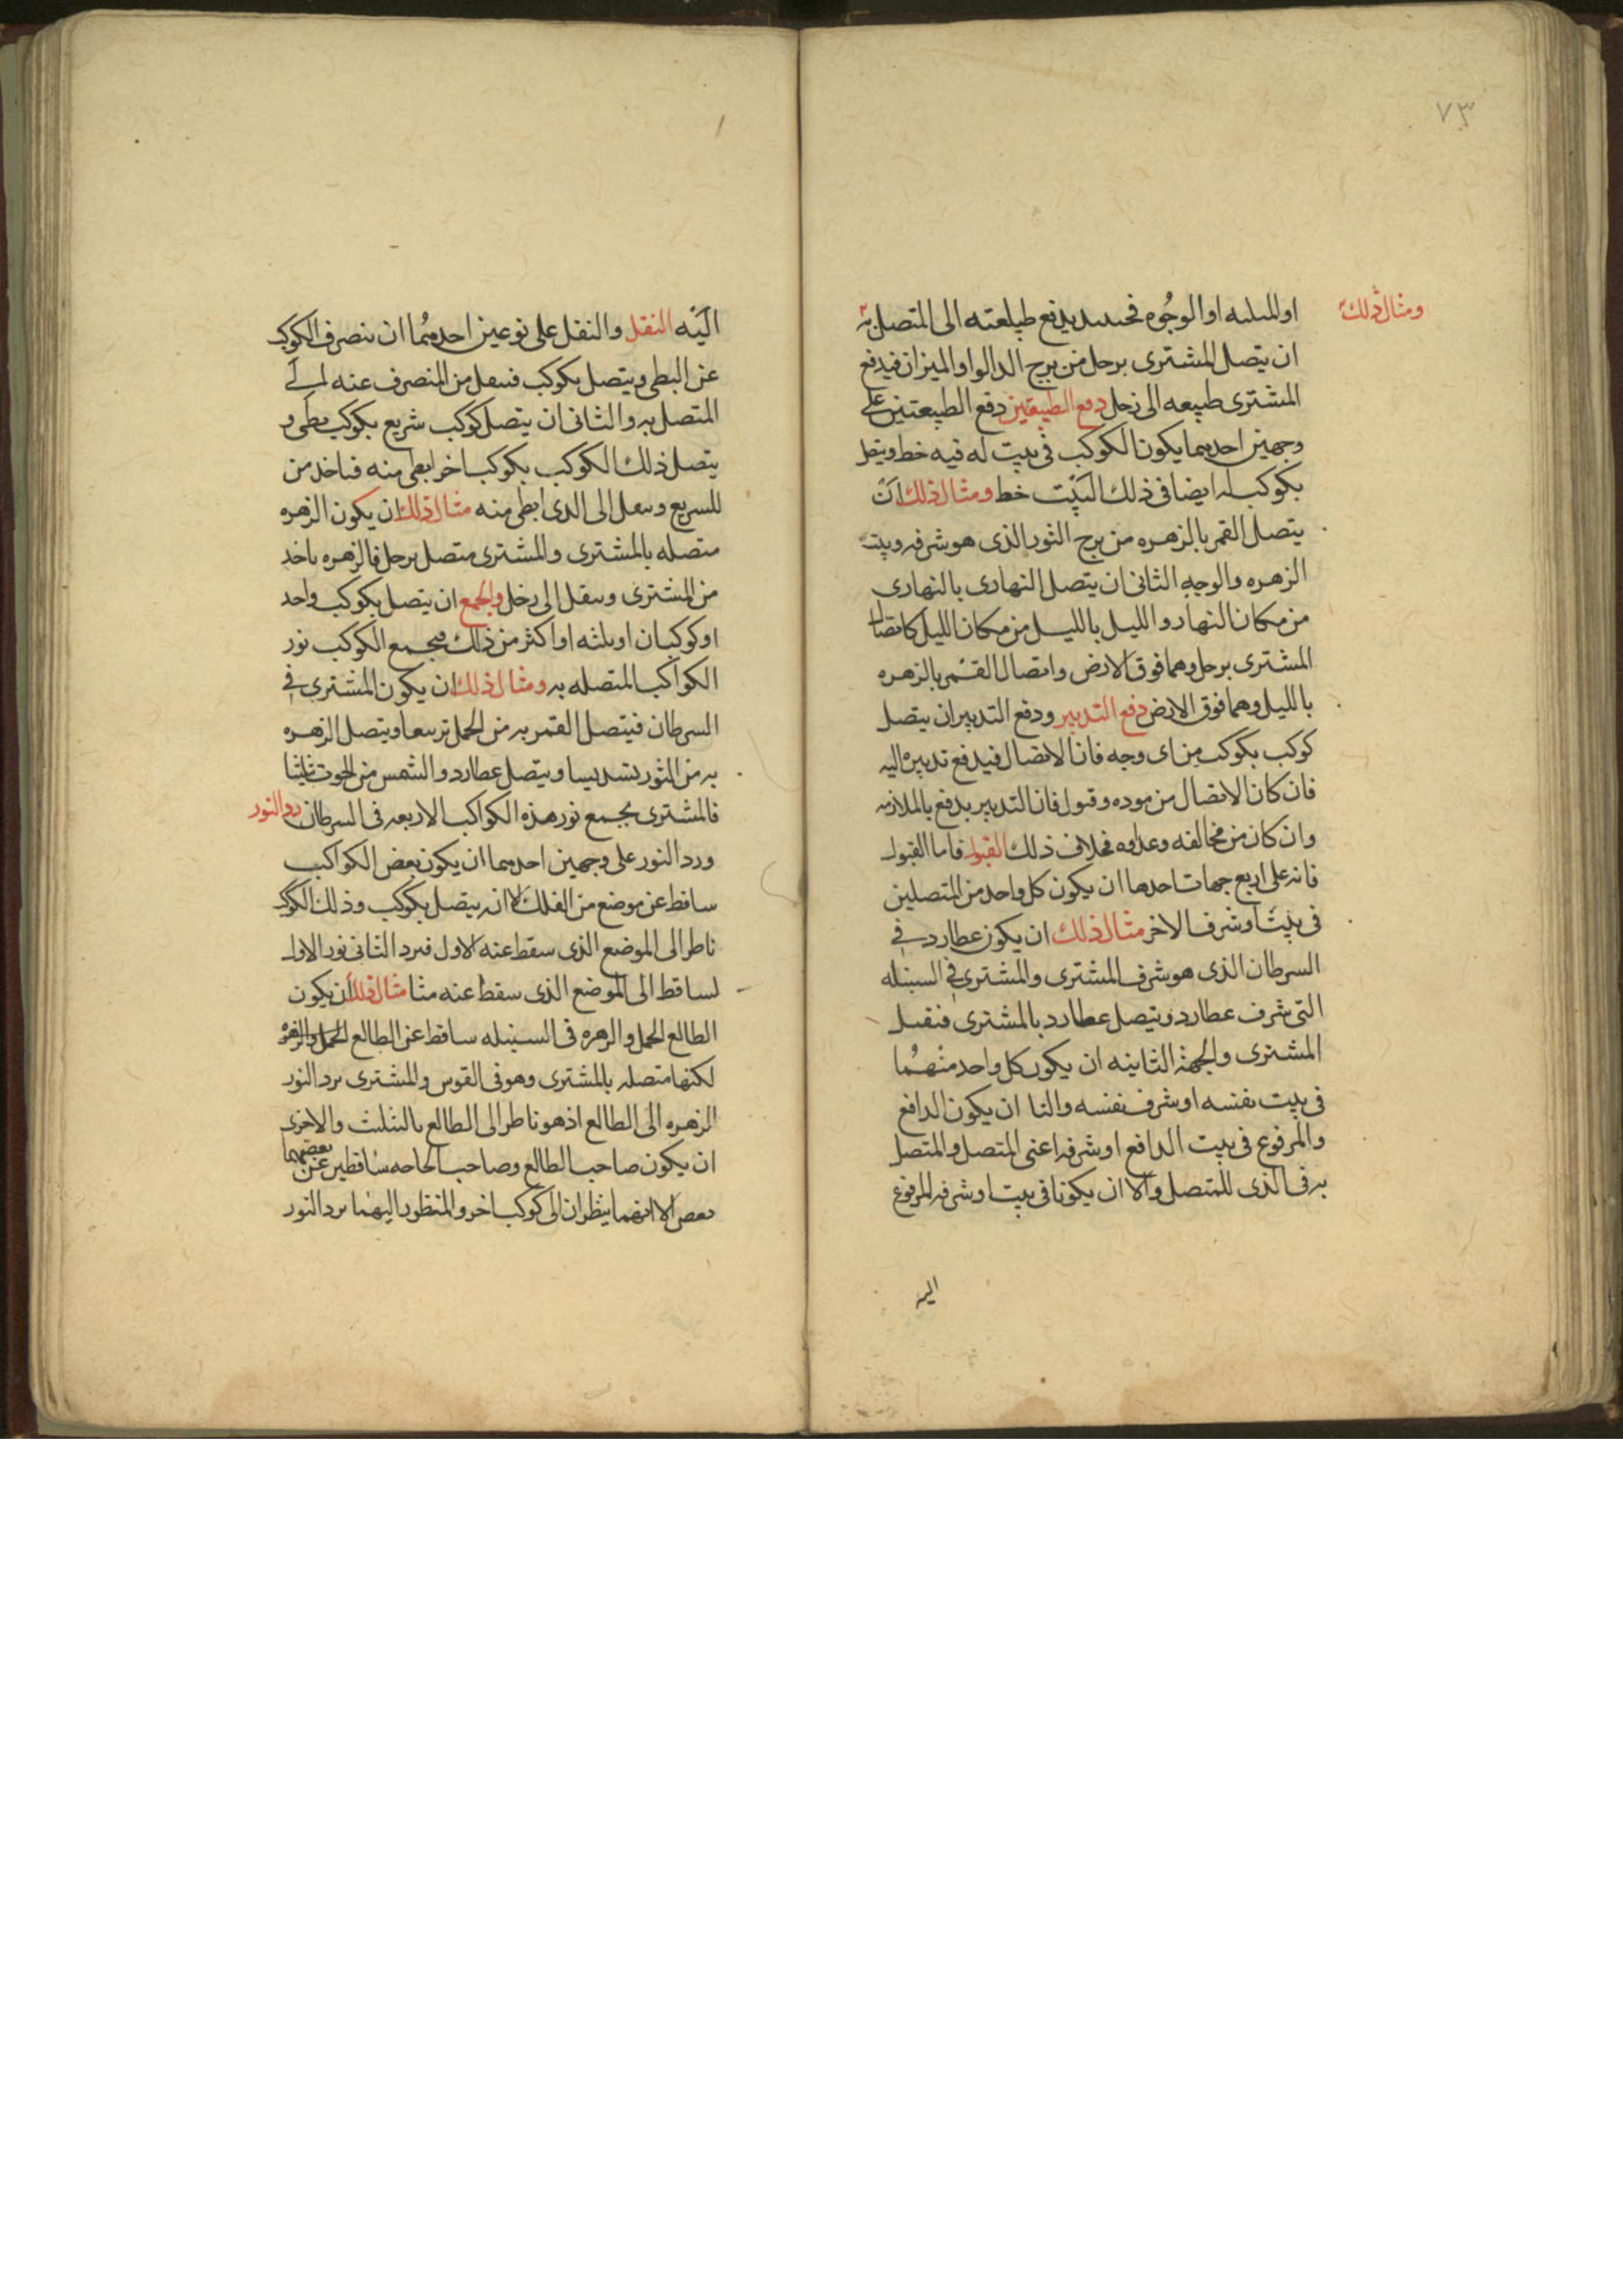 ٧٣
ومثال ذلك
او المثلثه او الوجُوه فحينئذ يدفع طبيعته الى المتصل به
ان يتصل المشترى بزحل من برج الدالو او الميزان فيدفع
المشترى طبيعه الى زحل دفع الطبيعتين دفع الطبيعتين على
وجهين احديهما يكون الكوكب فى بيت له فيه خط ويتصل
بكوكب له ايضا فى ذلك البَيْت خط ومثال ذلك اَنْ
يتصل القمر بالزهره من برج الثور الذى هو شرفه وبيت
الزهره والوجه الثانى ان يتصل النهارى بالنهارى
من مكان النهار والليل بالليل من مكان الليل كاتصال
المشترى بزحل وهما فوق الارض واتصال القمر بالزهره
بالليل وهما فوق الارض دفع التدبير ودفع التدبير ان يتصل
كوكب بكوكب من اى وجه فان الاتصال فيدفع تدبيره اليه
فان كان الاتصال من موده وقبول فان التدبير يدفع بالملازمه
وان كان من مخالفه وعداوه فخلاف ذلك القبول فاما القبول
فانه على اربع جهات احدها ان يكون كل واحد من المتصلين
فى بيت او شرف الاخر مثال ذلك ان يكون عطارد فى
السرطان الذى هو شرف المشترى والمشترى فى السنبله
التى شرف عطارد ويتصل عطارد بالمشترى فنقبل
المشترى والجهة الثانيه ان يكون كل واحد منهُمَا
فى بيت نفسه او شرف نفسه والثا ان يكون الدافع
والمرفوع فى بيت الدافع او شرفه اعنى المتصل والمتصل
به فى الذى للمتصل والا ان يكونا فى بيت او شرفه المرفوع
اليه
الَيْه النقل والنقل على نوعين احدهُمَا ان ينصرف الكوكب
عن البطى ويتصل بكوكب فينقل من المنصرف عنه الى
المتصل به والثانى ان يتصل كوكب شريع بكوكب بطى و
يتصل ذلك الكوكب بكوكب اخر ابطى منه فياخذ من
للسريع وينقل الى الذى ابطى منه مثال ذلك ان يكون الزهره
متصله بالمشترى والمشترى متصل بزحل فالزهره ياخد
من المشترى وينقل الى زحل والجمع ان يتصل بكوكب واحد
او كوكبان او ثلثه او اكثر من ذلك فيجمع الكوكب نور
الكواكب المتصله به ومثال ذلك ان يكون المشترى فى
السرطان فيتصل القمر به من الحمل تربيعا ويتصل الزهره
به من الثور تسديسا ويتصل عطارد والشمس من الحوت تثليثا
فالمشترى يجمع نور هذه الكواكب الاربعه فى السرطان رد النور
ورد النور على وجهين احديهما ان يكون بعض الكواكب
ساقط عن موضع من الفلك الا انه يتصل بكوكب وذلك الكوكب
ناظر الى الموضع الذى سقط عنه الاول فيرد الثانى نور الاول
لساقط الى الموضع الذى سقط عنه مثا مثال ذلك ان يكون
الطالع الحمل والزهره فى السنبله ساقط عن الطالع الحمل والزهره
لكنها متصله بالمشترى وهو فى القوس والمشترى يرد النور
الزهره الى الطالع اذ هو ناظر الى الطالع بالتثليث والاخرى
ان يكون صاحب الطالع وصاحب الحاجه ساقطين عن بعضهما
بعض الا انهما ينظران الى كوكب اخر والمنظور اليهما يرد النور